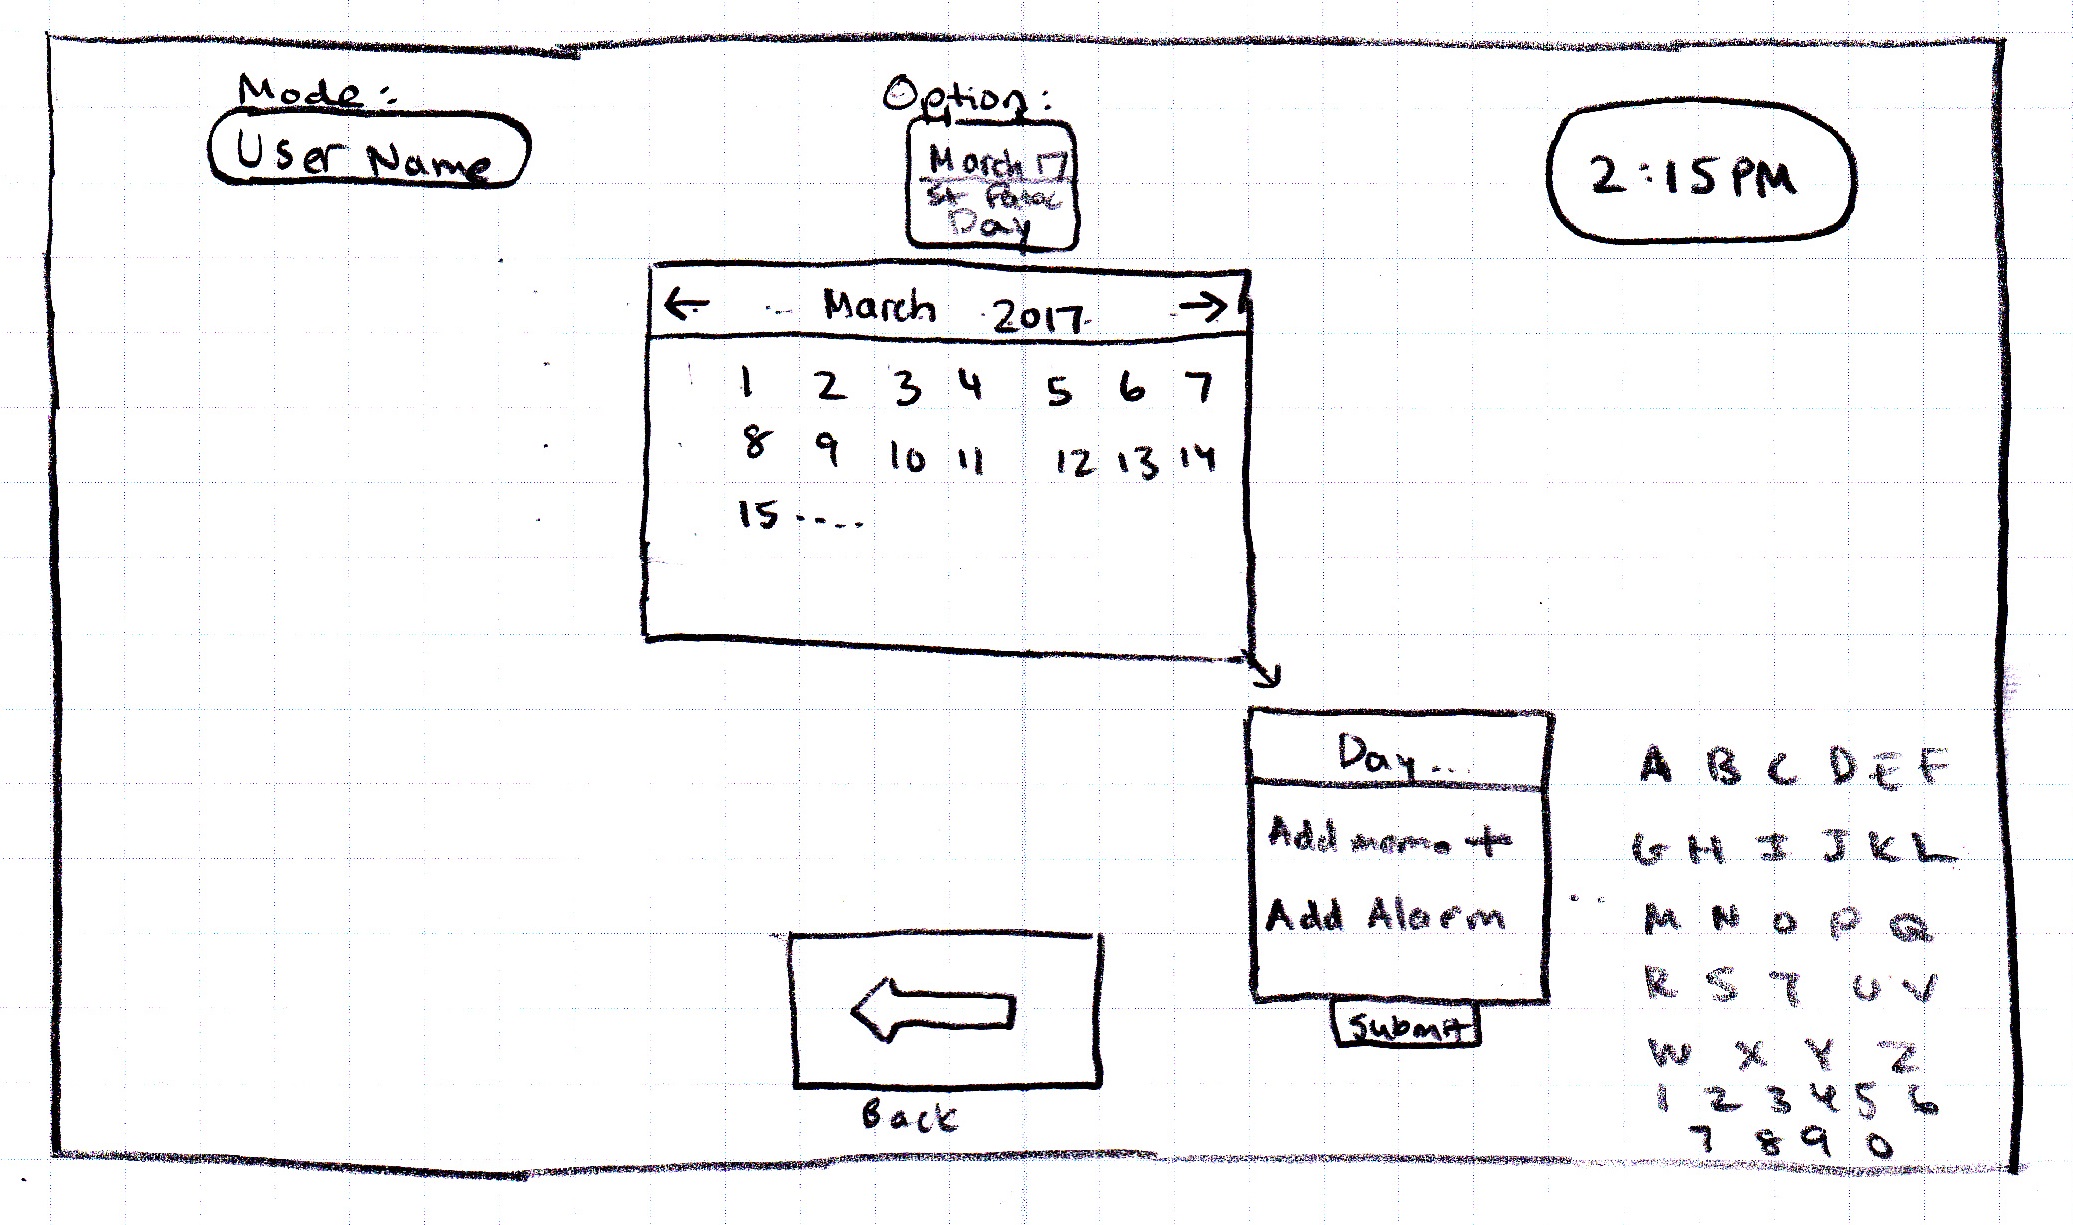 Mode:
User Name
Option:
March 17
St
Day
2:15PM
← March 2017 →
1 2 3 4 5 6 7
8 9 10 11 12 13 14
15 ....
Day...
Add memo +
Add Alarm
Submit
A B C D E F
G H I J K L
M N O P Q
R S T U V
W X Y Z
1 2 3 4 5 6
7 8 9 0
Back